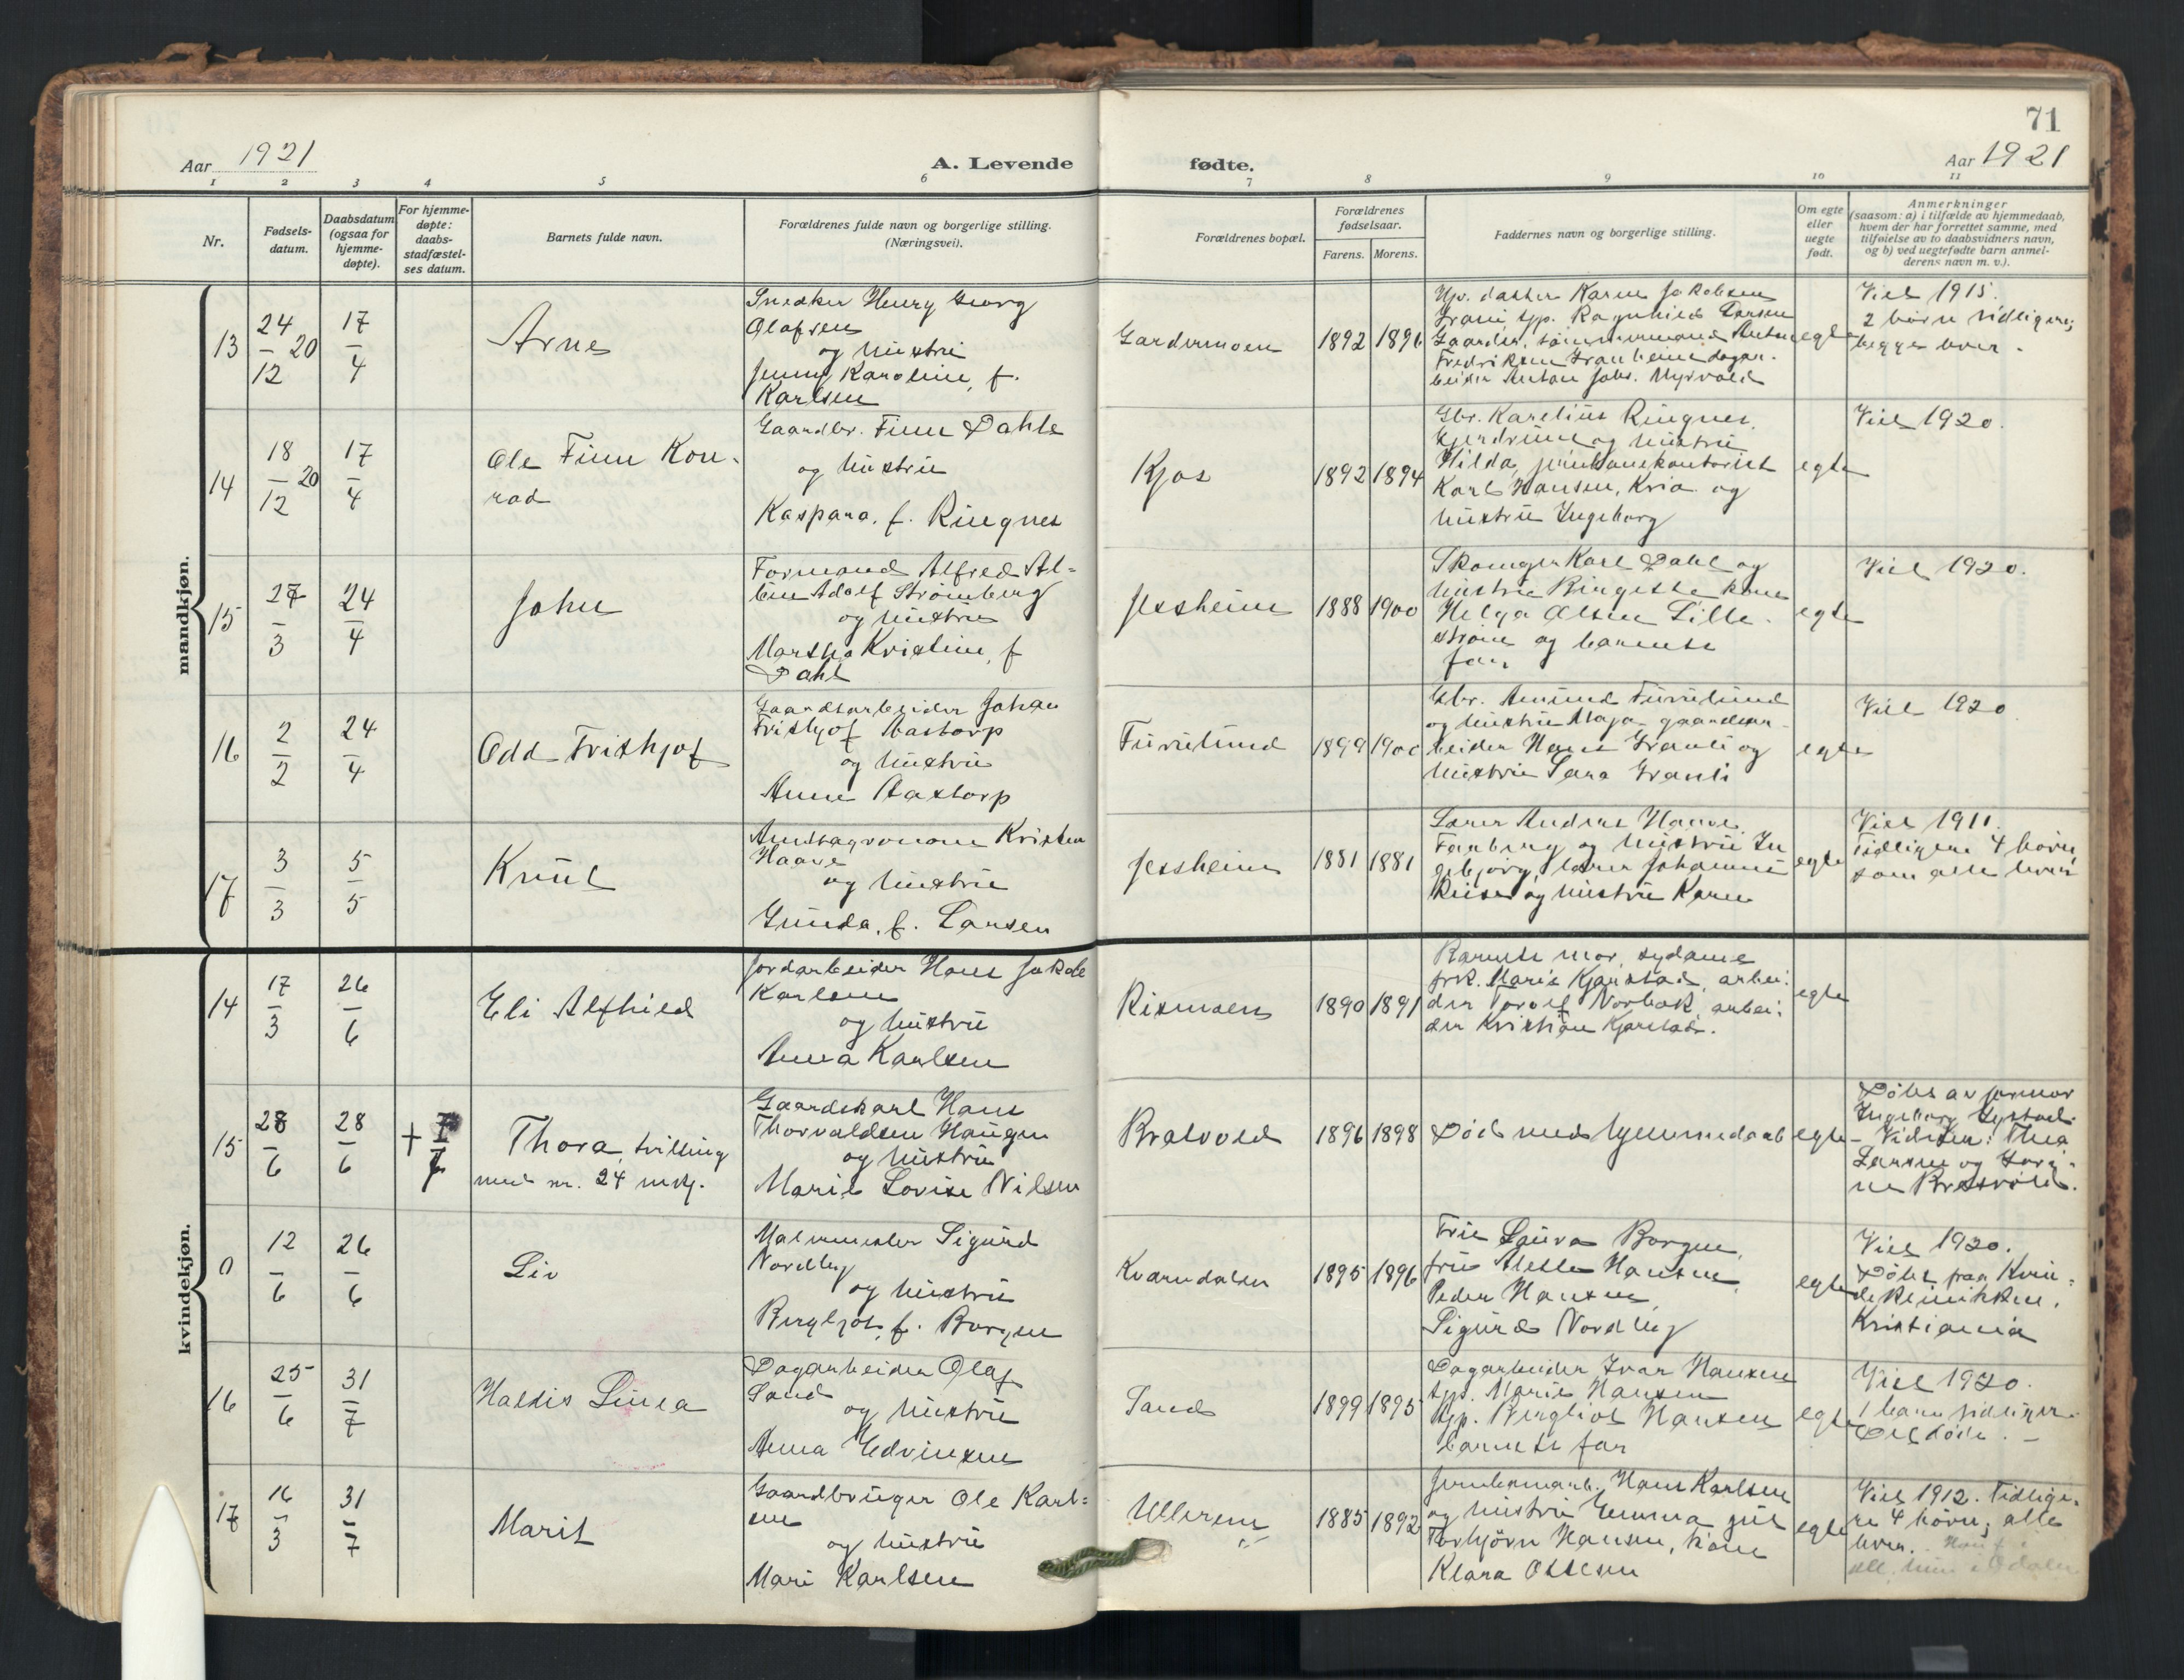 71
Aar 1921
A. Levende
fødte.
Aar 1921
1 2 3 4 5 6 7 8 9 10 11
Nr.
Fødsels-
datum.
Daabsdatum
(ogsaa for
hjemme-
døpte).
For hjemme-
døpte:
daabs-
stadfæstel-
ses datum.
Barnets fulde navn.
Forældrenes fulde navn og borgerlige stilling.
(Næringsvei).
Forældrenes bopæl.
Forældrenes
fødselsaar.
Farens. Morens.
Faddernes navn og borgerlige stilling.
Om egte
eller
uegte
født.
Anmerkninger
(saasom: a) i tilfælde av hjemmedaab,
hvem der har forrettet samme, med
tilføielse av to daabsvidners navn,
og b) ved uegtefødte barn anmel-
derens navn m. v.).
mandkjøn.
13
24/12 20
17/4
Arne
Snedker Henry Georg
Olafsen
og hustru
Jenny Karoline, f.
Karlsen
Gardermoen
1892 1896
Karen Jakobsen
Ragnhild Larsen
Fredriksen
Anton Johs. Myrvold
egte
Viet 1915.
2 børn tidligere;
begge lever.
14
18/12 20
17/4
Ole Finn Kon-
rad
Gaardbr. Finn Dahle
og hustru
Kaspara, f. Ringnes
Kjos
1892 1894
Gbr. Karelius Ringnes,
Gjerdrum og hustru
Hilda, jernbanekontorist
Karl Hansen, Kria og
hustru Ingeborg
egte
Viet 1920.
15
27/3
24/4
John
Formand Alfred Al-
bin Adolf Strømberg
og hustru
Martha Kristine, f
Dahl
Jessheim
1888 1900
Skomger Karl Dahl og
hustru Birgitte kone
Helga Olsen Lille-
strøm og barnets
far
egte
Viet 1920.
16
2/2
24/4
Odd Frithjof
Gaardsarbeider Johan
Frithjof Aastorp
og hustru
Anne Aastorp
Furulund
1899 1900
Gbr. Amund Furulund
og hustru Maja, gaardsar-
beider Hans Granli og
hustru Sara Granli
egte
Viet 1920
17
3/3
5/5
Knut
Amtsagronom Kristen
Haave
og hustru
Gunda, f. Larsen
Jessheim
1881 1881
Lærer Andres Haave,
Fanberg og hustru In
gebjørg, lærer Johannes
Reisen og hustru Karen
egte
Viet 1911.
Tidligere 4 børn,
som alle lever
kvindekjøn.
14
17/3
26/6
Eli Alfhild
Jordarbeider Hans Jakob
Karlsen
og hustru
Anna Karlsen
Rismoen
1890 1891
Barnets mor, sydame
frk. Marie Kjønstad, arbei-
der Torolf Norbak, arbei-
der Kristian Kjønstad.
egte
15
28/6
28/6
+ 7/7
Thora, tvilling
med nr. 24 mkj.
Gaardskarl Hans
Thorvaldsen Haugen
og hustru
Marie Lovise Nilsen
Bratvold
1896 1898
Død med hjemmedaab
egte
Døbt av jormor
Ingeborg Lystad.
Vidner: Thea
Larsen og Jørgi-
ne Bratvold.
0
12/6
26/6
Liv
Malermester Sigurd
Nordby
og hustru
Bergljot, f. Borgen
Kverndalen
1895 1896
Frue Laura Borgen,
frue Alette Hansen,
Peder Hansen,
Sigurd Nordby
egte
Viet 1920.
Døbt paa Kvin-
deklinikken,
Kristiania
16
25/6
31/7
Haldis Linea
Dagarbeider Olaf
Sand
og hustru
Anna Edvinsen
Sand
1899 1895
Dagarbeider Ivar Hansen
tjp. Marie Hansen
tjp. Bergliot Hansen
barnets far
egte
Viet 1920.
1 barn tidligere.
Det døde.
17
16/3
31/7
Marit
Gaardbruger Ole Karl-
sen
og hustru
Mari Karlsen
Ulleren
1885 1892
Jernbanearb. Hans Karlsen
og hustru Emma, gut
Torbjørn Hansen, kone
Klara Ottesen
egte
Viet 1912. Tidlige-
re 4 børn; alle
lever.